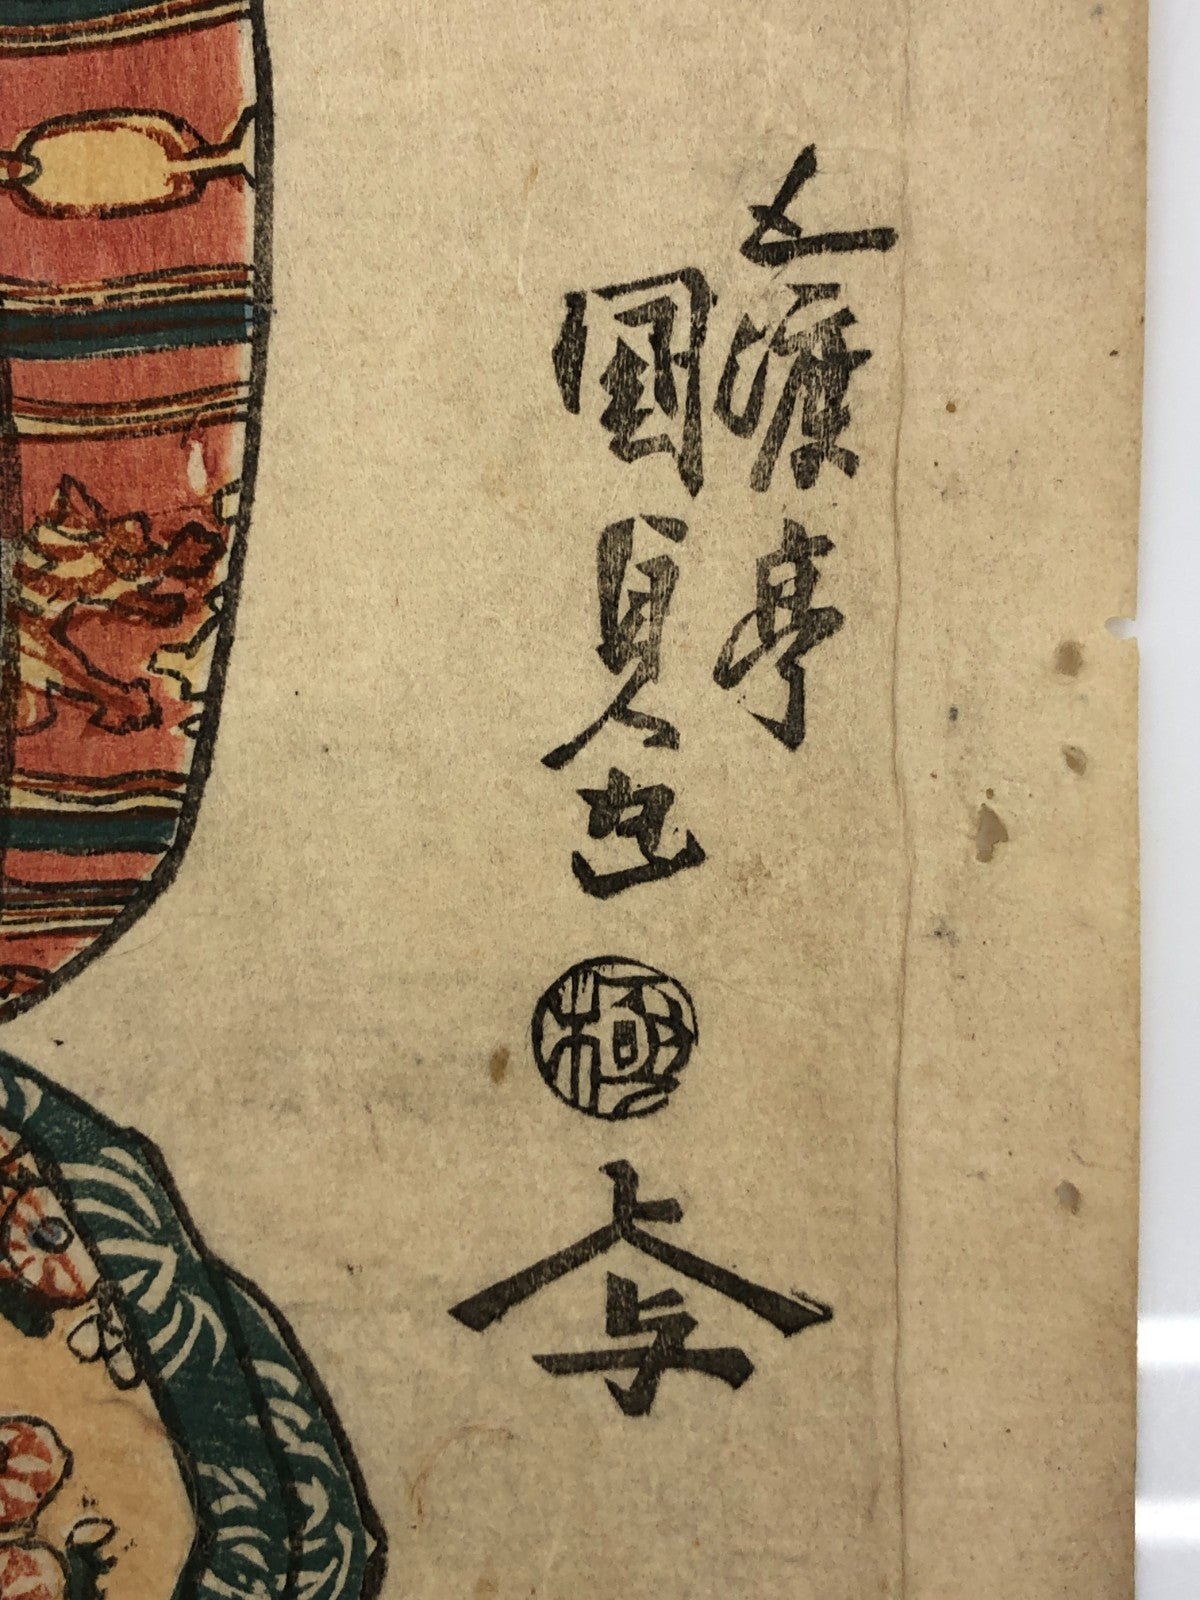 五渡亭
國貞画
極
上
与